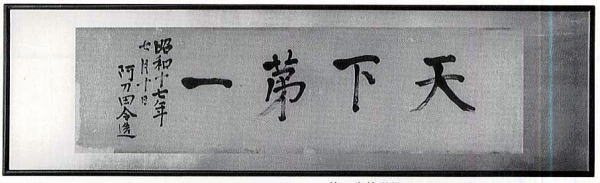 天下第一
昭和十七年
七月十日
阿刀田令造